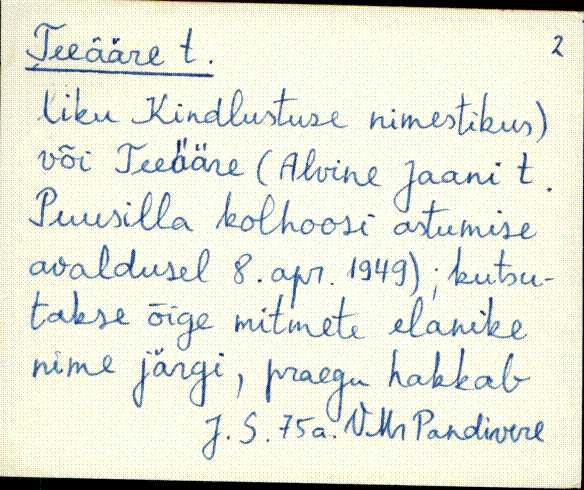 Teeääre t. 2
liku Kindlustuse nimestikus)
või Teeääre (Alvine Jaani t.
Puusilla kolhoosi astumise
avaldusel 8. apr. 1949); kutsu-
takse õige mitmete elanike
nime järgi, praegu hakkab
J. S. 75a. VMr Pandivere